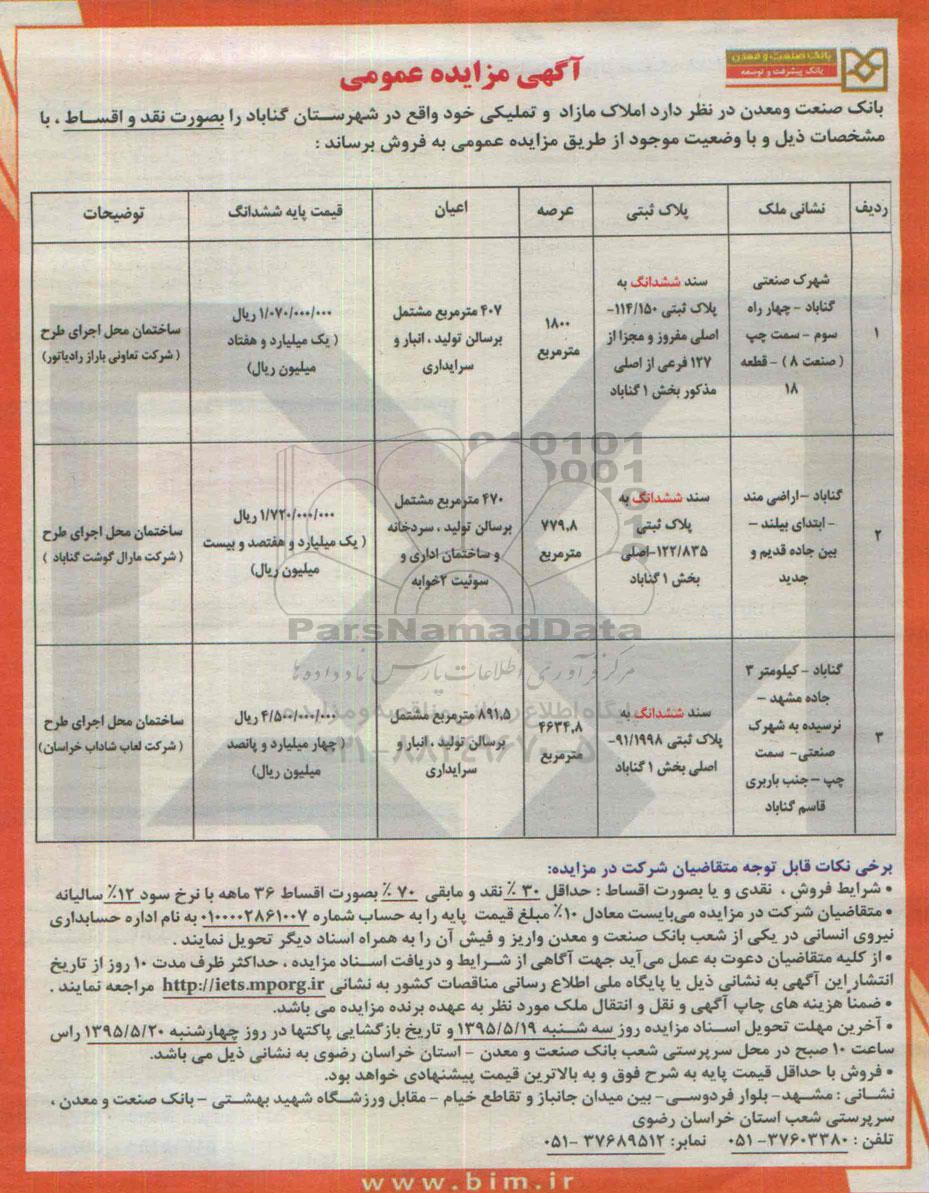 بانک صنعت و معدن
بانک پیشرفت و توسعه
آگهی مزایده عمومی
بانک صنعت ومعدن در نظر دارد املاک مازاد و تملیکی خود واقع در شهرستان گناباد را بصورت نقد و اقساط ، با
مشخصات ذیل و با وضعیت موجود از طریق مزایده عمومی به فروش برساند :
ردیف نشانی ملک پلاک ثبتی عرصه اعیان قیمت پایه ششدانگ توضیحات
۱
شهرک صنعتی
گناباد - چهار راه
سوم - سمت چپ
( صنعت ۸ ) - قطعه
۱۸
سند ششدانگ به
پلاک ثبتی ۱۱۴/۱۵۰-
اصلی مفروز و مجزا از
۱۲۷ فرعی از اصلی
مذکور بخش ۱ گناباد
۱۸۰۰
مترمربع
۴۰۷ مترمربع مشتمل
برسالن تولید ، انبار و
سرایداری
۱/۰۷۰/۰۰۰/۰۰۰ ریال
( یک میلیارد و هفتاد
میلیون ریال)
ساختمان محل اجرای طرح
( شرکت تعاونی باراز رادیاتور)
۲
گناباد -اراضی مند
- ابتدای بیلند -
بین جاده قدیم و
جدید
سند ششدانگ به
پلاک ثبتی
۱۲۲/۸۳۵-اصلی
بخش ۱ گناباد
۷۷۹,۸
مترمربع
۴۷۰ مترمربع مشتمل
برسالن تولید ، سردخانه
و ساختمان اداری و
سوئیت ۲خوابه
۱/۷۲۰/۰۰۰/۰۰۰ ریال
( یک میلیارد و هفتصد و بیست
میلیون ریال)
ساختمان محل اجرای طرح
( شرکت مارال گوشت گناباد )
۳
گناباد - کیلومتر ۳
جاده مشهد -
نرسیده به شهرک
صنعتی- سمت
چپ -جنب باربری
قاسم گناباد
سند ششدانگ به
پلاک ثبتی ۹۱/۱۹۹۸-
اصلی بخش ۱ گناباد
۴۶۳۴,۸
مترمربع
۸۹۱,۵ مترمربع مشتمل
برسالن تولید ، انبار و
سرایداری
۴/۵۰۰/۰۰۰/۰۰۰ ریال
( چهار میلیارد و پانصد
میلیون ریال)
ساختمان محل اجرای طرح
( شرکت لعاب شاداب خراسان)
ParsNamadData
مرکز فرآوری اطلاعات پارس نماد داده ها
برخی نکات قابل توجه متقاضیان شرکت در مزایده:
• شرایط فروش ، نقدی و یا بصورت اقساط : حداقل ۳۰ ٪ نقد و مابقی ۷۰ ٪ بصورت اقساط ۳۶ ماهه با نرخ سود ۱۲٪ سالیانه
• متقاضیان شرکت در مزایده می‌بایست معادل ۱۰٪ مبلغ قیمت پایه را به حساب شماره ۰۱۰۰۰۰۲۸۶۱۰۰۷ به نام اداره حسابداری
نیروی انسانی در یکی از شعب بانک صنعت و معدن واریز و فیش آن را به همراه اسناد دیگر تحویل نمایند .
• از کلیه متقاضیان دعوت به عمل می‌آید جهت آگاهی از شرایط و دریافت اسناد مزایده ، حداکثر ظرف مدت ۱۰ روز از تاریخ
انتشار این آگهی به نشانی ذیل یا پایگاه ملی اطلاع رسانی مناقصات کشور به نشانی http://iets.mporg.ir مراجعه نمایند .
• ضمناً هزینه های چاپ آگهی و نقل و انتقال ملک مورد نظر به عهده برنده مزایده می باشد.
• آخرین مهلت تحویل اسناد مزایده روز سه شنبه ۱۳۹۵/۵/۱۹ و تاریخ بازگشایی پاکتها در روز چهارشنبه ۱۳۹۵/۵/۲۰ راس
ساعت ۱۰ صبح در محل سرپرستی شعب بانک صنعت و معدن - استان خراسان رضوی به نشانی ذیل می باشد.
• فروش با حداقل قیمت پایه به شرح فوق و به بالاترین قیمت پیشنهادی خواهد بود.
نشانی : مشهد- بلوار فردوسی- بین میدان جانباز و تقاطع خیام - مقابل ورزشگاه شهید بهشتی - بانک صنعت و معدن ،
سرپرستی شعب استان خراسان رضوی
تلفن : ۳۷۶۰۳۳۸۰- ۰۵۱ نمابر: ۳۷۶۸۹۵۱۲ -۰۵۱
www.bim.ir